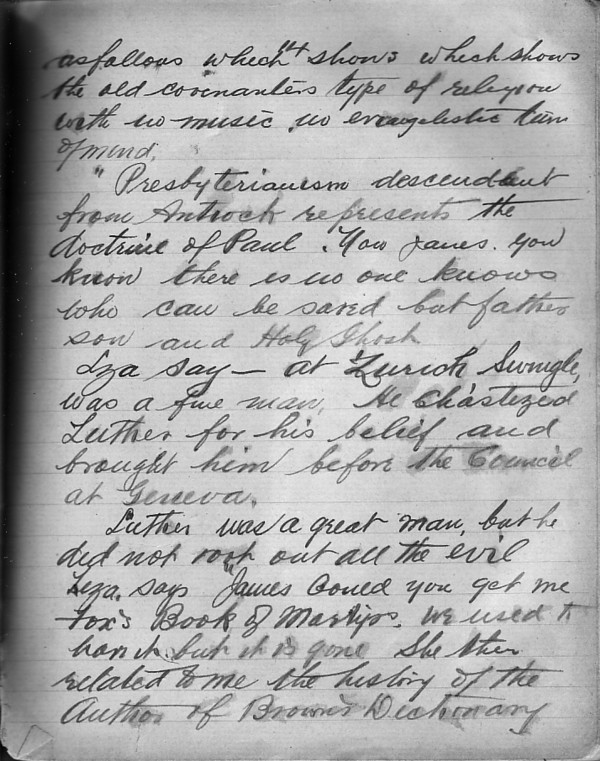 as follows which it shows which shows
the old covenanters type of religion
with no music no evangelistic turn
of mind.
" Presbyterianism descendent
from Antioch represents the
doctrine of Paul. Now James. you
know there is no one knows
who can be saved but father
son and Holy Ghost
Liza say — at Zurich Swingle,
was a fine man, He chastezed
Luther for his belief and
brought him before the Council
at Geneva.
Luther was a great man, but he
did not root out all the evil
Liza. says "James Could you get me
Fox's Book of Martyrs. We used to
have it but it is gone She then
related to me the history of the
Author of Brown's Dictionary